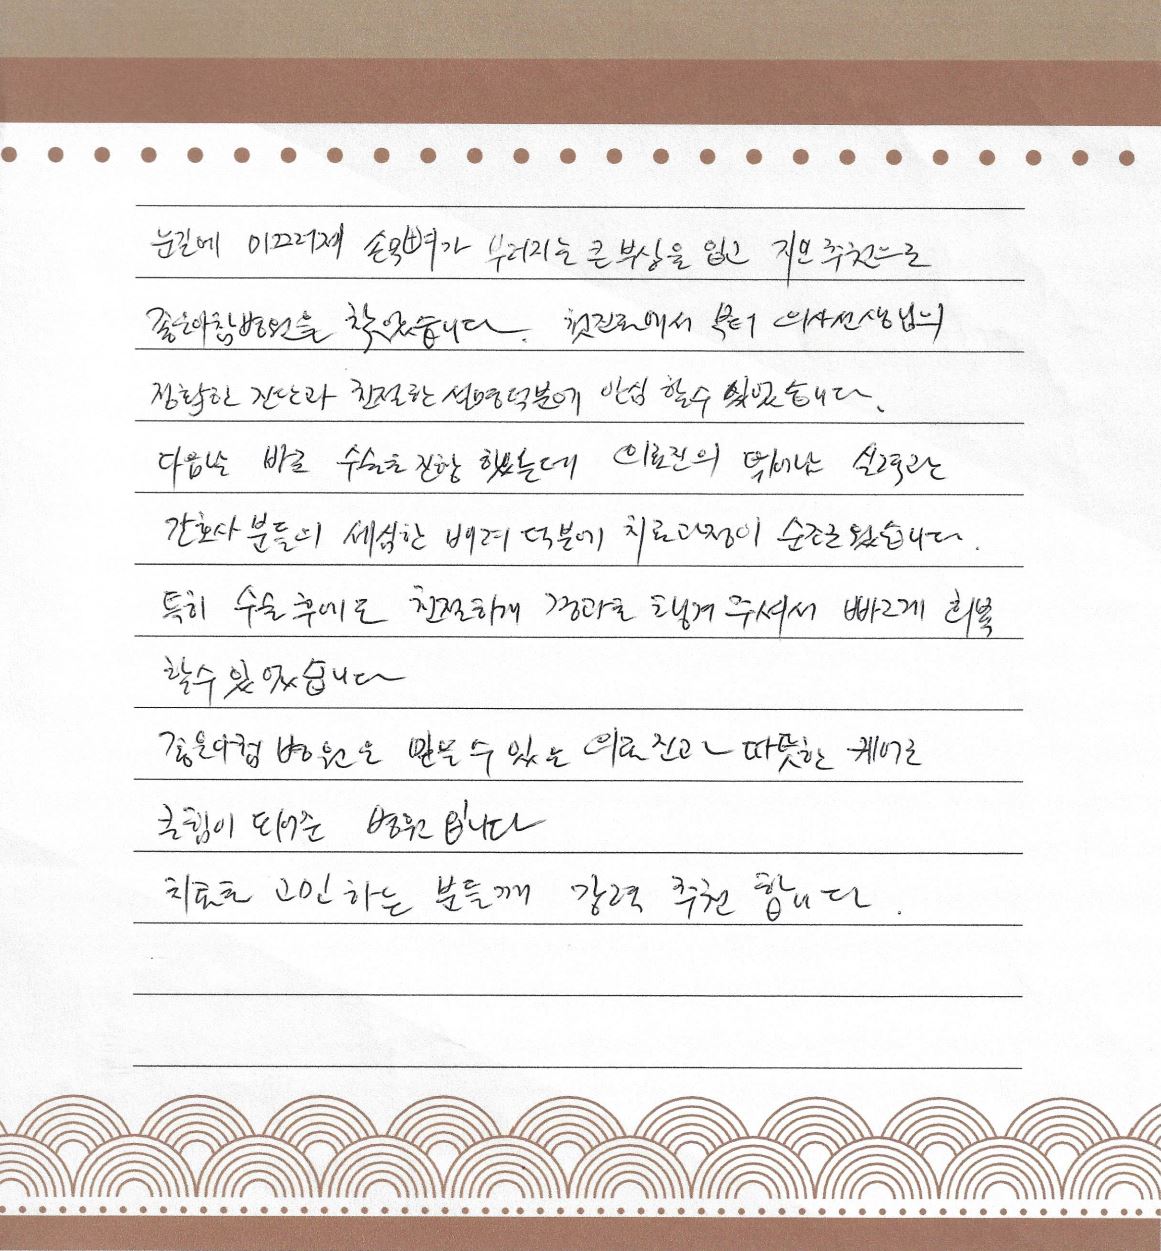 눈길에 미끄러져 손목뼈가 부러지는 큰 부상을 입고 지인 추천으로
좋은아침병원을 찾았습니다. 첫진료에서 부터 의사선생님의
정확한 진단과 친절한 설명덕분에 안심 할수 있었습니다.
다음날 바로 수술을 진행 했는데 의료진의 뛰어난 실력과
간호사 분들의 세심한 배려 덕분에 치료과정이 순조로웠습니다.
특히 수술 후에도 친절하게 경과를 챙겨 주셔서 빠르게 회복
할수 있었습니다
좋은아침 병원은 믿을 수 있는 의료진과 따뜻한 케어로
큰힘이 되어준 병원 입니다
치료를 고민 하는 분들께 강력 추천 합니다.